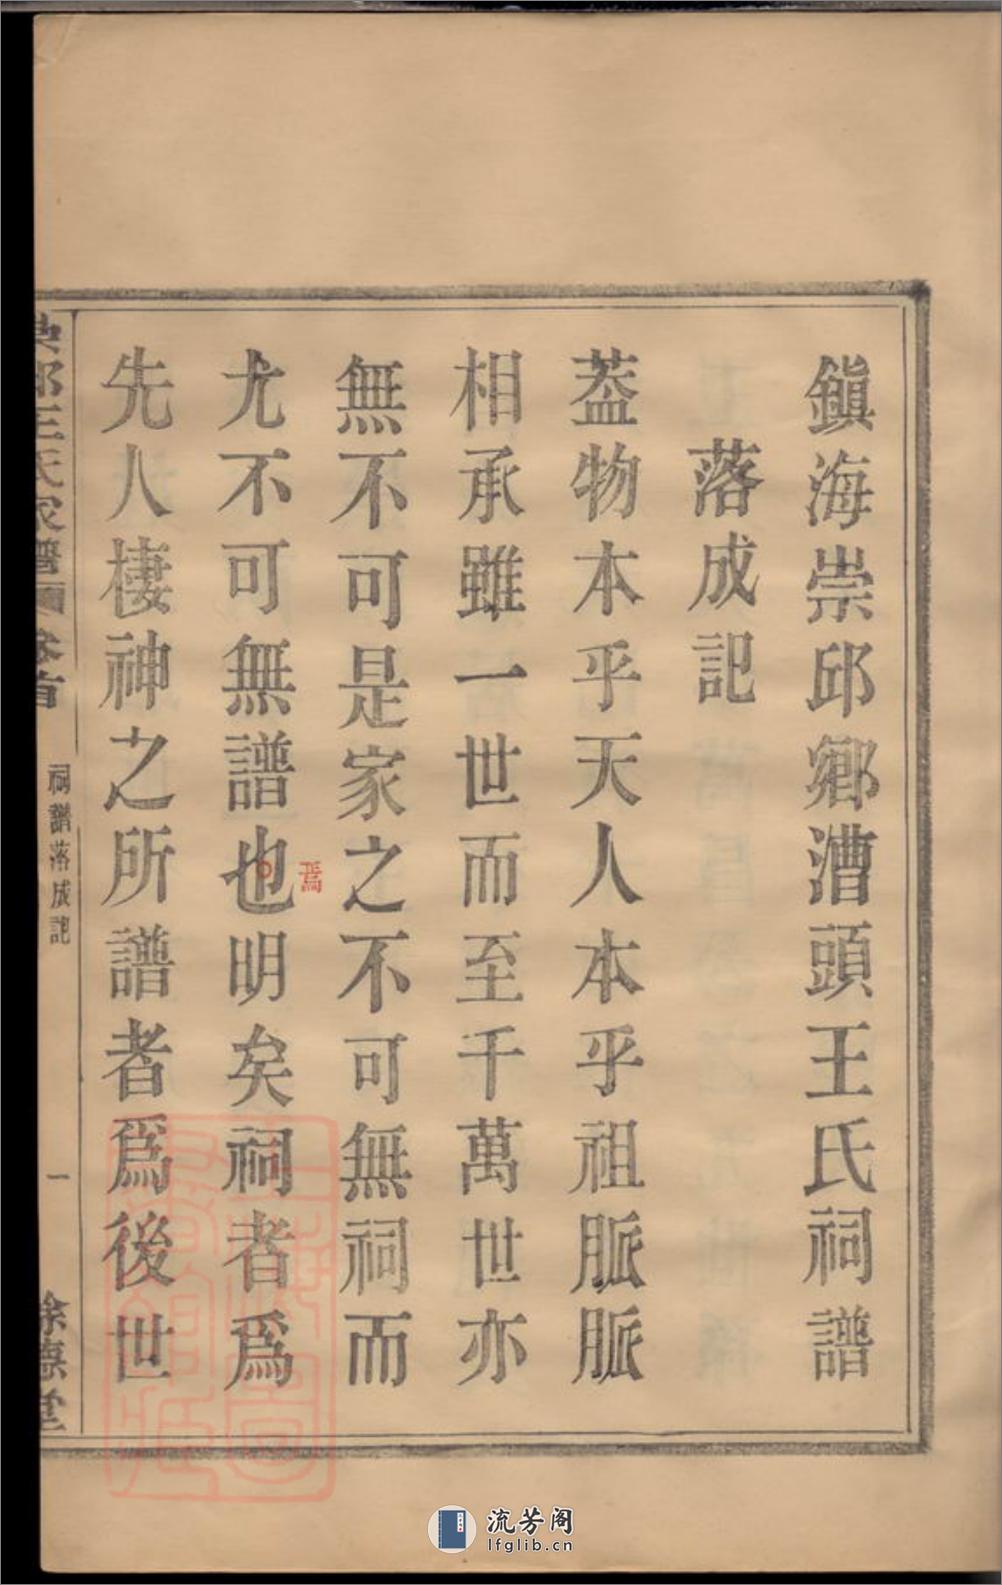 鎮海崇邱鄉漕頭王氏祠譜
落成記
葢物本乎天人本乎祖脈脈
相承雖一世而至千萬世亦
無不可是家之不可無祠而
焉
尤不可無譜也明矣祠者爲
先人棲神之所譜者爲後世
王氏家譜 卷首 祠譜落成記 一 餘慶堂
流芳阁
lfglib.cn